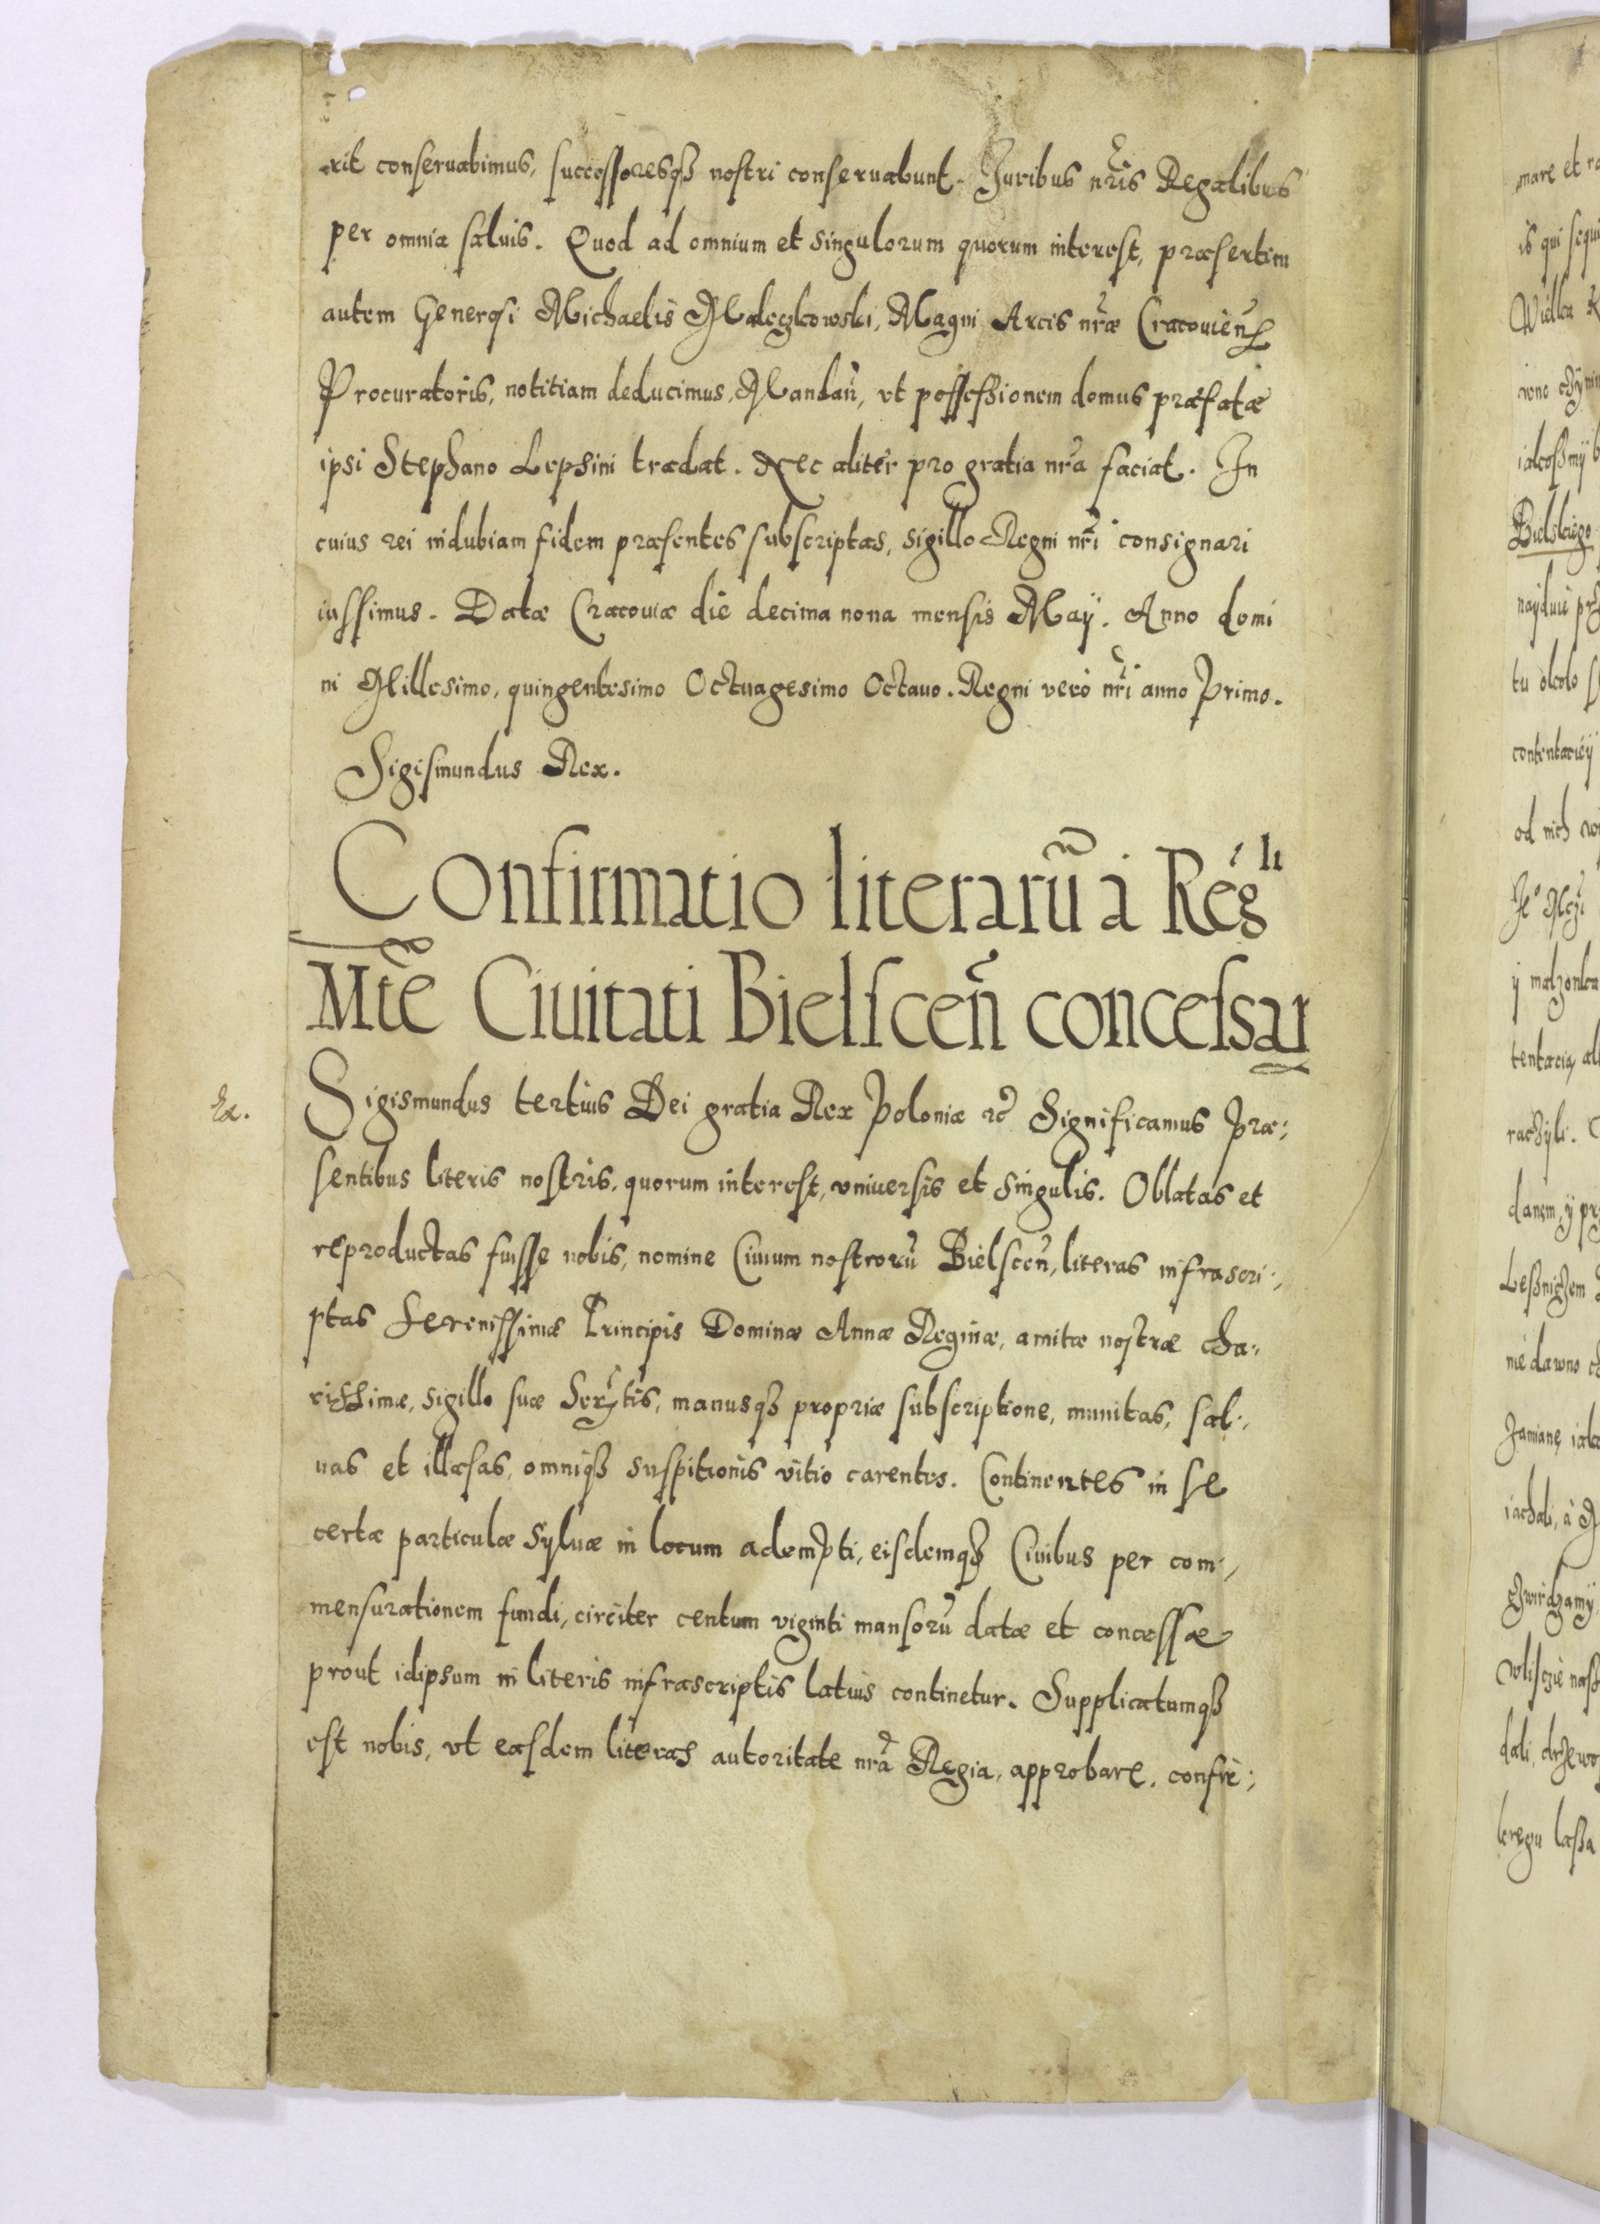 rit conseruabimus, successoresqȝ nostri conseruabunt. Iuribus nr̃is Regalibus
per omnia saluis. Quod ad omnium et singulorum quorum interest, præsertim
autem Generosi Michaelis Maleczkowski, Magni Arcis nr̃æ Cracouien̄
Procuratoris, notitiam deducimus, Mandan̄, vt possessionem domus præfatæ
ipsi Stephano Lepsini tradat. Nec aliter pro gratia nr̃a faciat. In
cuius rei indubiam fidem præsentes subscriptas, sigillo Regni nr̃i consignari
iussimus. Datæ Cracouiæ die decima nona mensis Maÿ. Anno domi
ni Millesimo, quingentesimo Octuagesimo Octauo. Regni vero nr̃i anno Primo.
Sigismundus Rex.
Confirmatio literarũ à Reg li
Mt̃e Ciuitati Bielscen̄ concessar
Ex.
Sigismundus tertius Dei gratia Rex Poloniæ ꝛc̃ Significamus Præ:
sentibus literis nostris, quorum interest, vniuersis et singulis. Oblatas et
reproductas fuisse nobis, nomine Ciuium nostrorũ Bielscen̄, literas infrascri:
ptas Serenissimæ Principis Dominæ Annæ Reginæ, amitæ nostræ cha:
rissimæ, sigillo suæ Serr̃tis, manusqȝ propriæ subscriptione, munitas, sal:
uas et illæsas, omniqȝ suspitionis vitio carentes. Continentes in se
certæ particulæ Syluæ in locum adempti, eisdemqȝ Ciuibus per com:
mensurationem fundi, circiter centum viginti mansorũ datæ et concessæ
prout idipsum in literis infrascriptis latius continetur. Supplicatumqȝ
est nobis, vt easdem literas autoritate nr̃a Regia, approbare, confir:
mare et ra
is qui sequi
Bielskiego
contentacieÿ
od nich
tentacia
rachÿli.
nie dawno
iachali, à
dali, drzewo
brzegu laßa